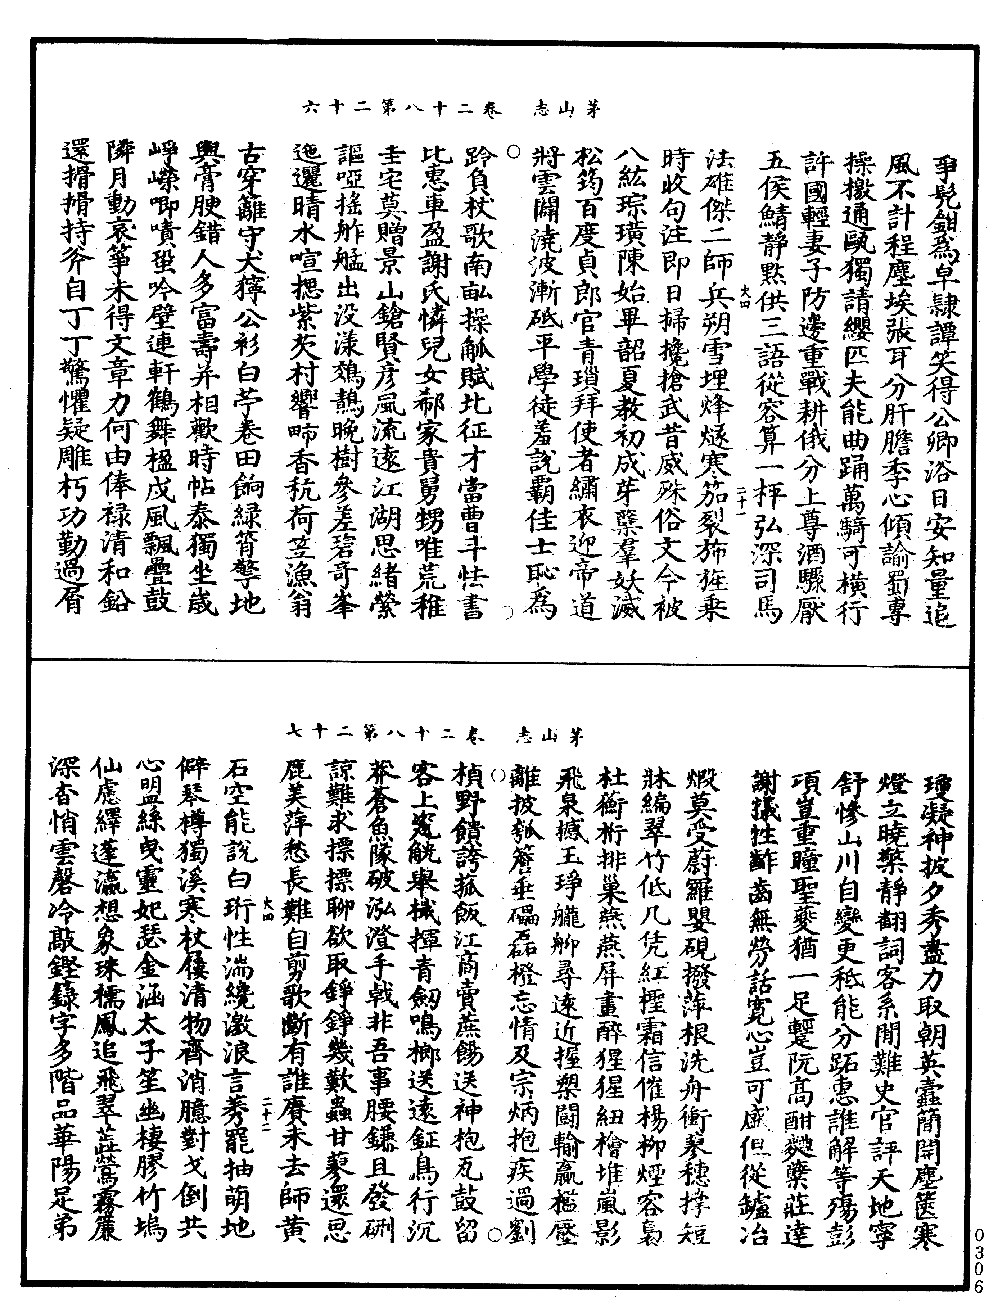 茅山志　卷二十八第二十六
爭髡鉗為皁隷譚笑得公卿浴日安知量追
風不計程塵埃張耳分肝膽李心傾諭蜀專
操檄通甌獨請纓匹夫能曲踊萬騎可橫行
許國輕妻子防邊重戰耕俄分上尊酒驟厭
五侯鯖靜㸃供三語從容算一枰弘深司馬
法雄傑二師兵朔雪埋烽燧寒笳裂斾旌乗
時收句注即日掃攙搶武昔威殊俗文今被
八紘琮璜陳始畢韶夏教初成芽糵羣妖滅
松筠百度貞郎官青瑣拜使者繡衣迎帝道
將雲闢澆波漸砥平學徒羞說霸佳士恥為
跉負杖歌南畝操觚賦北征才當曹斗怯書
比惠車盈謝氏憐兒女郗家貴舅甥唯荒稚
圭宅莫贈景山鎗賢彦風流遠江湖思緒縈
謳啞搖舴艋出没漾鵁鶄晚樹參差碧竒峯
迤邐晴水喧揌紫𦫼村響㽟香秔荷笠漁翁
古穿籬守犬獰公衫白苧卷田餉緑筲擎地
與膏腴錯人多富壽并相歡時帖泰獨坐歳
崢嶸唧嘖蛩吟壁連軒鶴舞楹戍風飄疊鼓
隣月動哀箏未得文章力何由俸祿清和鉛
還搰搰持斧自丁丁驚懼疑雕朽功勤過屑
大四
二十一
茅山志　卷二十八第二十七
瓊凝神披夕秀盡力取朝英蠧簡開塵篋寒
燈立曉檠靜翻詞客系閒難史官評天地寜
舒慘山川自變更秪能分跖惠誰解等殤彭
項豈重瞳聖夔猶一足輕阮高酣麴糵莊達
謝犧牲齰齒無勞話寛心豈可盛但從鑪冶
煅莫受蔚羅嬰硯撥萍根洗舟衝蓼穗撑短
牀編翠竹低几凭紅檉霜信催楊柳煙容裊
杜蘅桁排巢燕燕屏畫醉猩猩紐檜堆嵐影
飛泉撼玉琤朧䏾尋遠近握槊闘輸贏檻壓
離披瓠簷垂磥磊橙忘情及宗炳抱疾過劉
楨野饋誇菰飯江商賣蔗餳送神抱瓦鼓留
客上㼝觥舉楫揮青劒鳴榔送遠鉦鳥行沉
莽蒼魚隊破泓澄手戟非吾事腰鎌且發硎
諒難求摽摽聊欲取錚錚幾歎蟲甘蓼還思
鹿美萍愁長難自剪歌斷有誰賡未去師黄
石空能說白珩性湍繞激浪言莠罷抽萌地
僻琴樽獨溪寒杖屨清物齊消臆對戈倒共
心盟絲曳靈妃瑟金涵太子笙幽棲膠竹塢
仙慮繹蓬瀛想象珠襦鳳追飛翠蕋鶯霧簾
深杳悄雲磬冷敲鏗籙字多階品華陽足弟
大四
二十二
0306